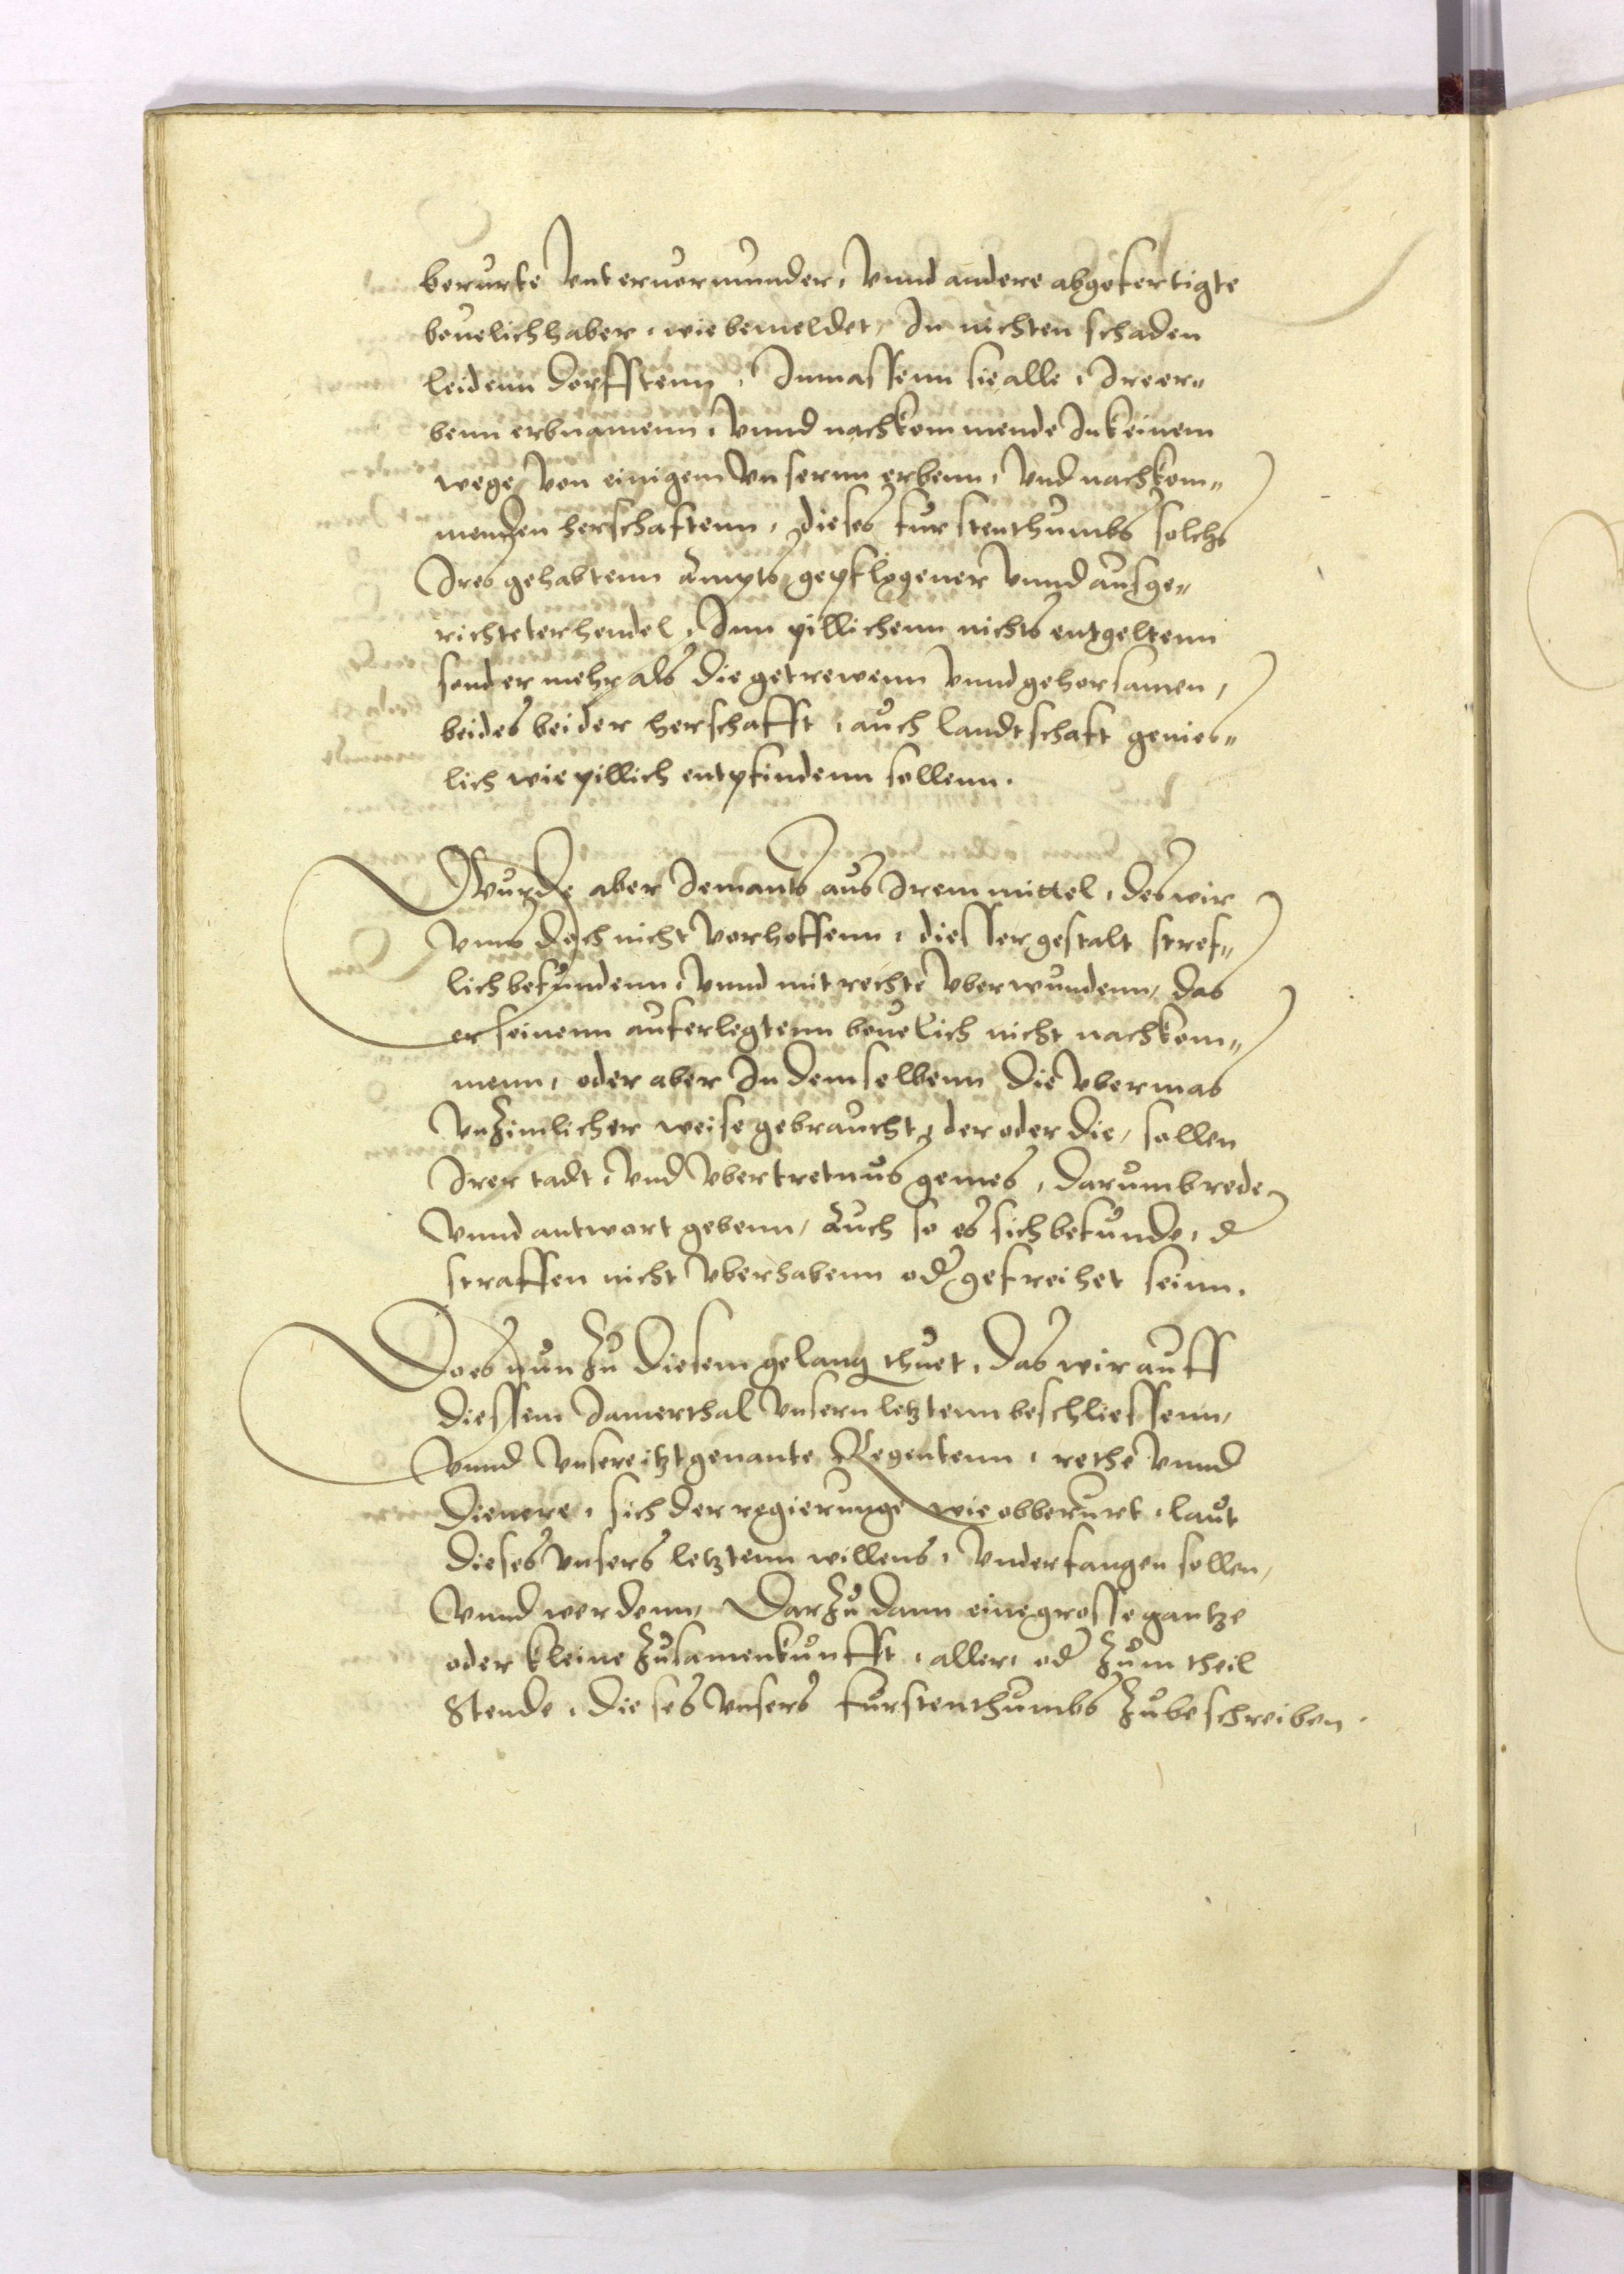 berurte Vnteruormunder, Vnnd andere abgefertigte
beuelichhaber, wie bemeldet, In nichten schaden
leidenn dorfftenn, Inmassenn sie alle, Ire er„
benn erbnamenn, Vnnd nachkommende In keinem
wege, Von einigem Vnsernn erbenn, Vnd nachkom„
menden herschaftenn, dieses furstenthumbs solchs
Ires gehabtenn Ampts, gepflogener Vnnd ausge„
richteter hendel, Inn pillichenn nichts entgeltenn
sonder mehr als die getrewenn Vnnd gehorsamen,
beides bei der herschafft, auch landtschaft genies„
lich wie pillich entpfindenn sollenn.
Wurde aber Iemants aus Irem mittel, des wir
Vnns doch nicht Verhoffenn, diesser gestalt stref„
lich befundenn, Vnnd mit rechte Vberwundenn, das
er seinenn auferlegtenn beuelich nicht nachkom„
menn, oder aber In demselbenn die Vbermas
Vnzimlicher weise gebraucht, der oder die, sollen
Irer tadt, Vnd Vbertretnus gemes, darumb rede
Vnnd antwort gebenn, Auch so es sich befunde, d
straffen nicht Vberhabenn od gefreihet seinn.
Do es nun zu diesem gelang thuet, das wir auff
diessem Jamerthal Vnsern letztenn beschliessenn,
Vnnd Vnsere itztgenante Regentenn, rethe Vnnd
dienere, sich der regierunge wie obberurt, laut
dieses Vnsers letztenn willens, Vnderfangen sollen,
Vnnd werdenn, Darzu dann eine grosse gantze
oder kleine Zusamenkunfft, aller, od zum theil
Stende, dieses Vnsers furstenthumbs zubeschreiben.